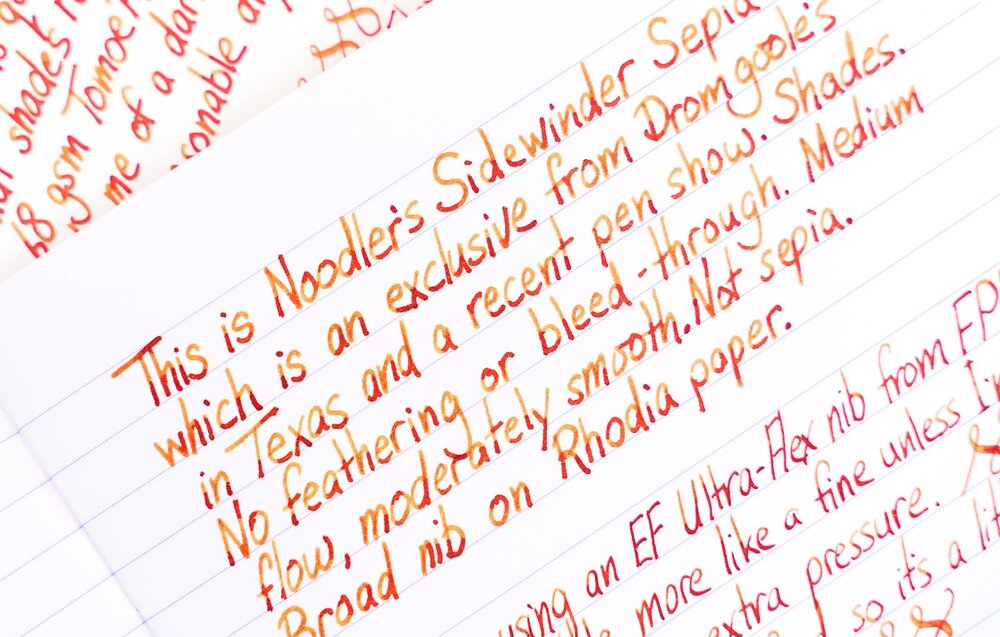 shades
68 gsm Tomoe
me of a dar
sonable
This is Noodler's Sidewinder Sepia
which is an exclusive from Dromgoole's
in Texas and a recent pen show. Shades.
No feathering or bleed-through. Medium
flow, moderately smooth. Not sepia.
Broad nib on Rhodia paper.
using an EF Ultra-Flex nib from FP
more like a fine unless I'm
extra pressure.
so it's a lit